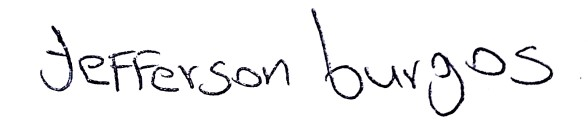 Jefferson burgos